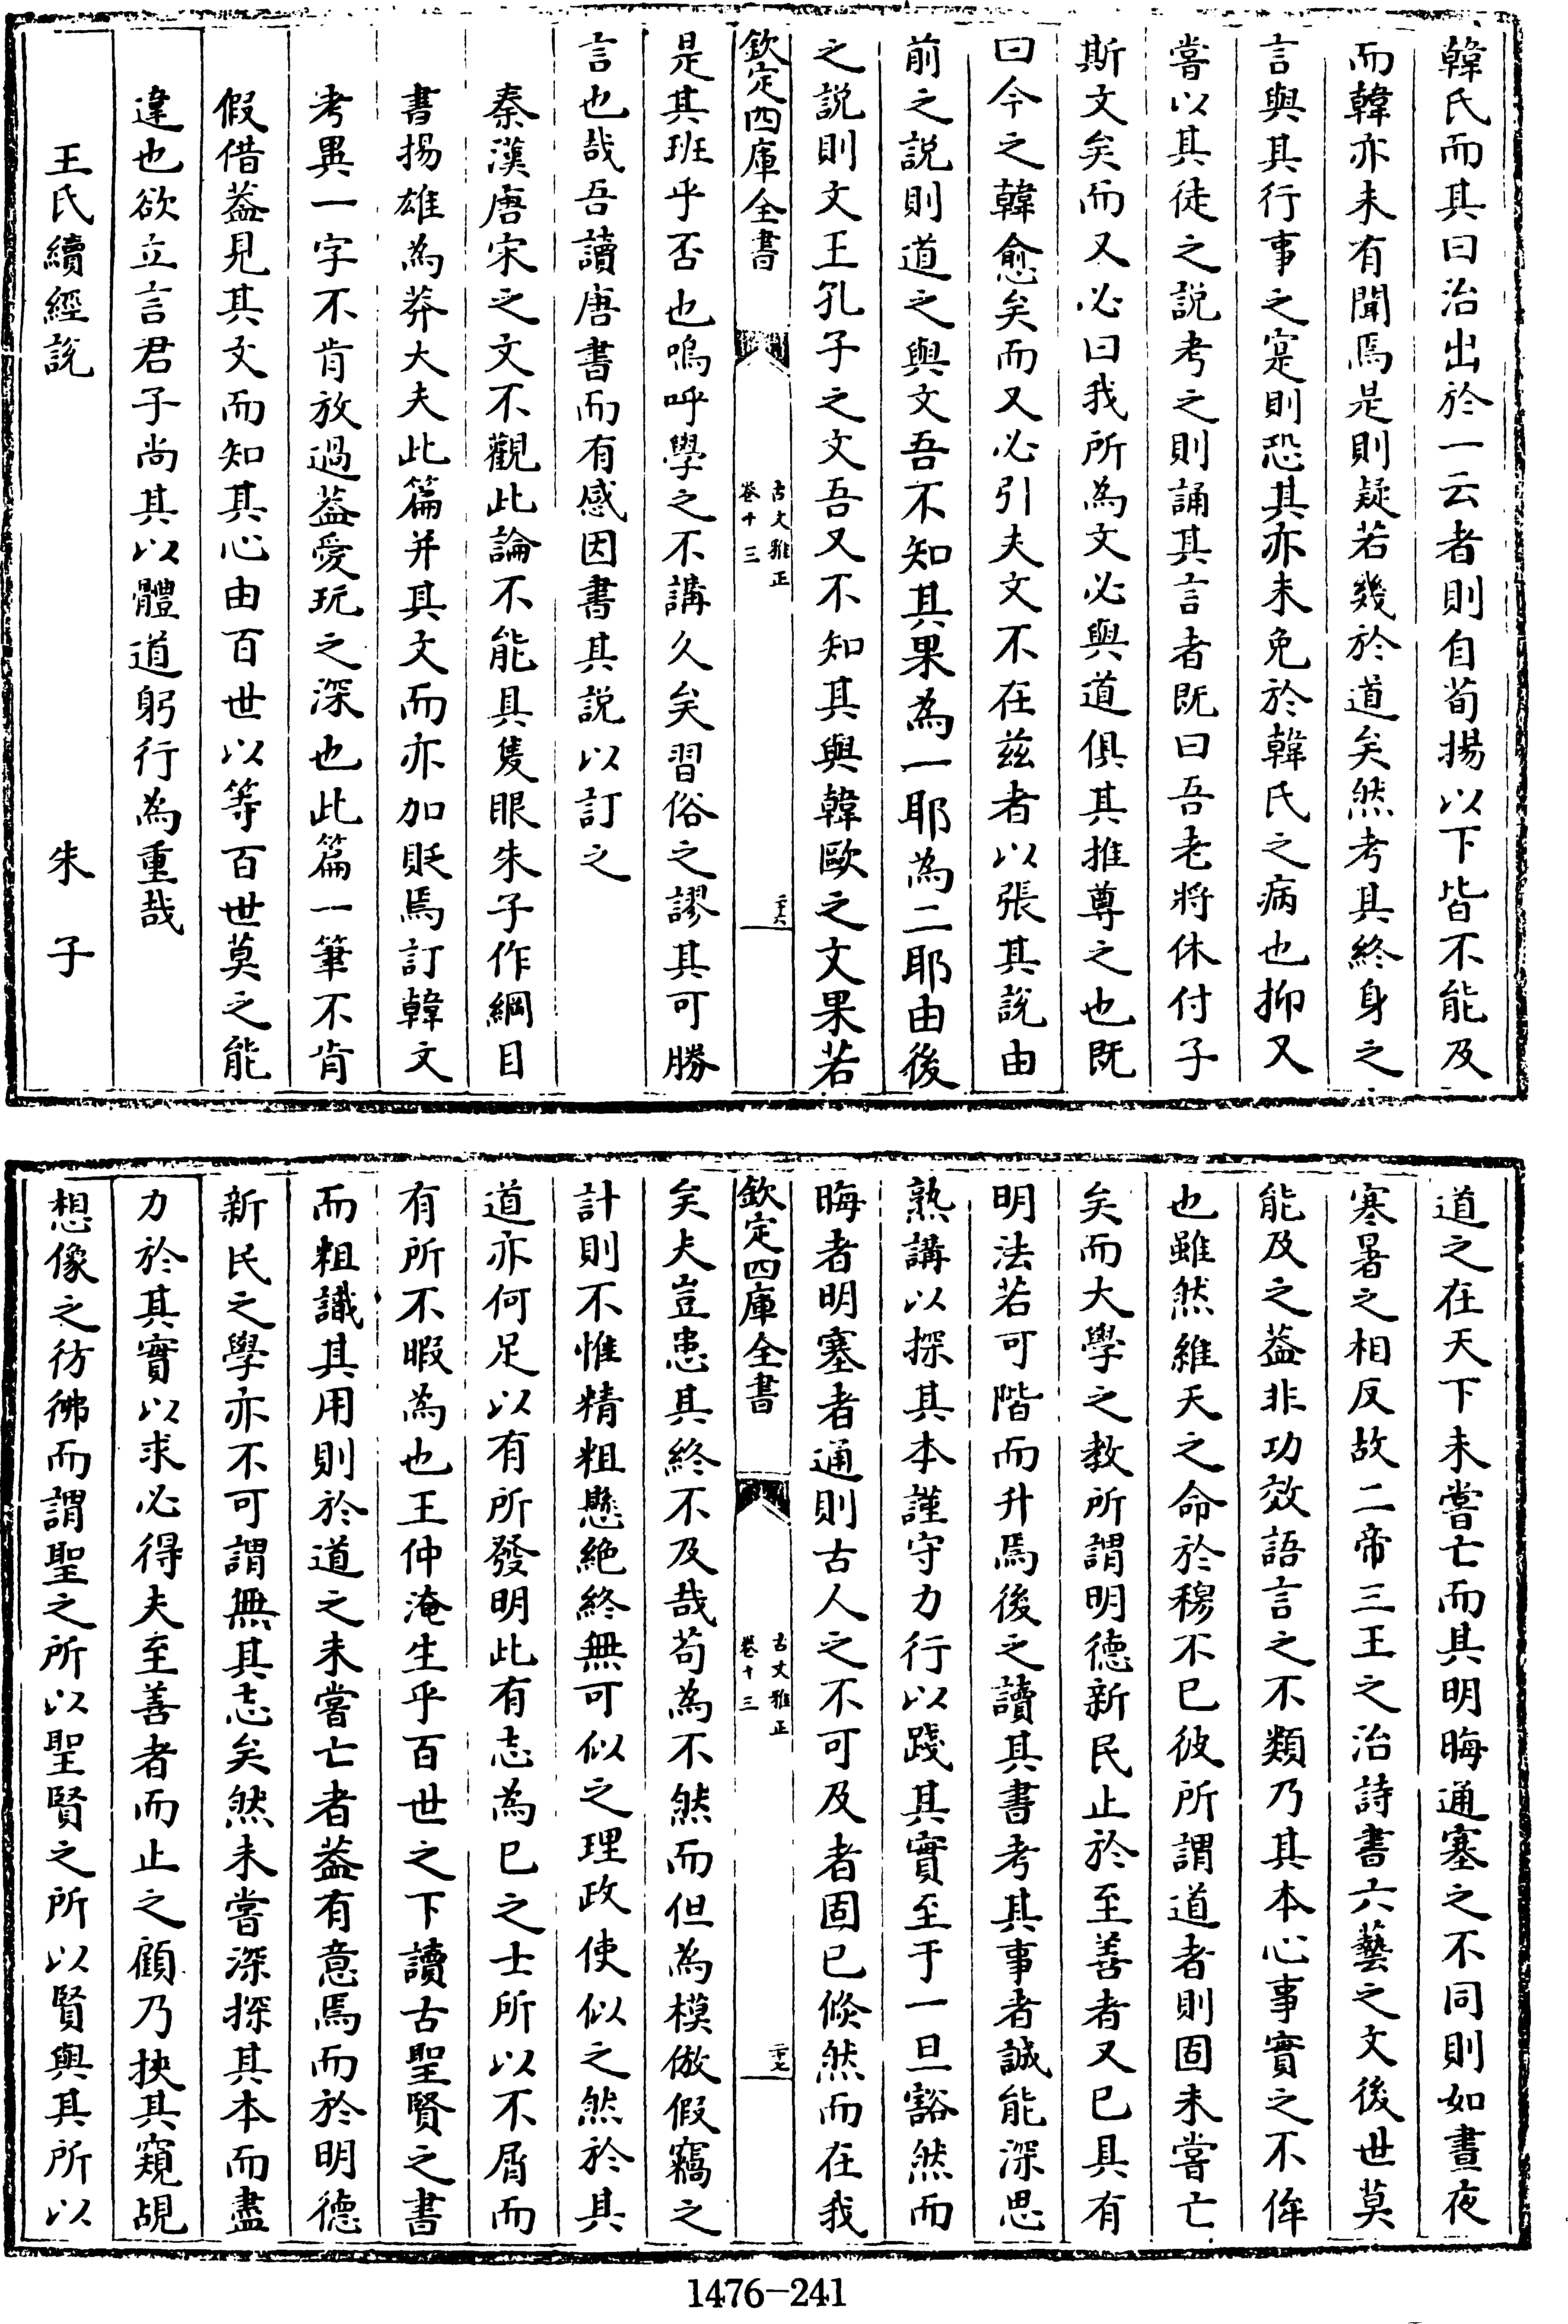 韓氏而其曰治出於一云者則自荀揚以下皆不能及
而韓亦未有聞焉是則疑若幾於道矣然考其終身之
言與其行事之寔則恐其亦未免於韓氏之病也抑又
嘗以其徒之說考之則誦其言者既曰吾老將休付子
斯文矣而又必曰我所為文必與道俱其推尊之也既
曰今之韓愈矣而又必引夫文不在兹者以張其説由
前之説則道之與文吾不知其果為一耶為二耶由後
之説則文王孔子之文吾又不知其與韓歐之文果若
欽定四庫全書
古文雅正
卷十三
二十六
是其班乎否也嗚呼學之不講久矣習俗之謬其可勝
言也哉吾讀唐書而有感因書其説以訂之
秦漢唐宋之文不觀此論不能具隻眼朱子作綱目
書揚雄為莽大夫此篇并其文而亦加貶焉訂韓文
考異一字不肯放過葢愛玩之深也此篇一筆不肯
假借葢見其文而知其心由百世以等百世莫之能
違也欲立言君子尚其以體道躬行為重哉
王氏續經説
朱子
道之在天下未嘗亡而其明晦通塞之不同則如晝夜
寒暑之相反故二帝三王之治詩書六藝之文後世莫
能及之葢非功效語言之不類乃其本心事實之不侔
也雖然維天之命於穆不已彼所謂道者則固未嘗亡
矣而大學之教所謂明德新民止於至善者又已具有
明法若可階而升焉後之讀其書考其事者誠能深思
熟講以探其本謹守力行以踐其實至于一旦豁然而
晦者明塞者通則古人之不可及者固已倐然而在我
欽定四庫全書
古文雅正
卷十三
二十七
矣夫豈患其終不及哉苟為不然而但為模倣假竊之
計則不惟精粗懸絶終無可似之理政使似之然於其
道亦何足以有所發明此有志為已之士所以不屑而
有所不暇為也王仲淹生乎百世之下讀古聖賢之書
而粗識其用則於道之未嘗亡者葢有意焉而於明德
新民之學亦不可謂無其志矣然未嘗深探其本而盡
力於其實以求必得夫至善者而止之顧乃挾其窺覘
想像之彷彿而謂聖之所以聖賢之所以賢與其所以
1476-241